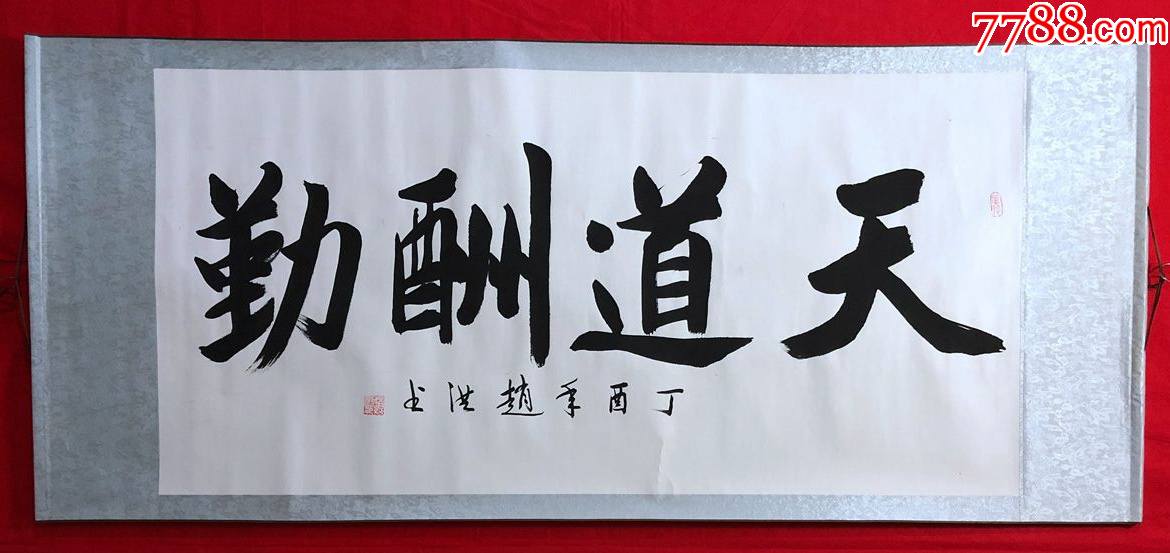 7788.com
天道酬勤
丁酉年趙洪书